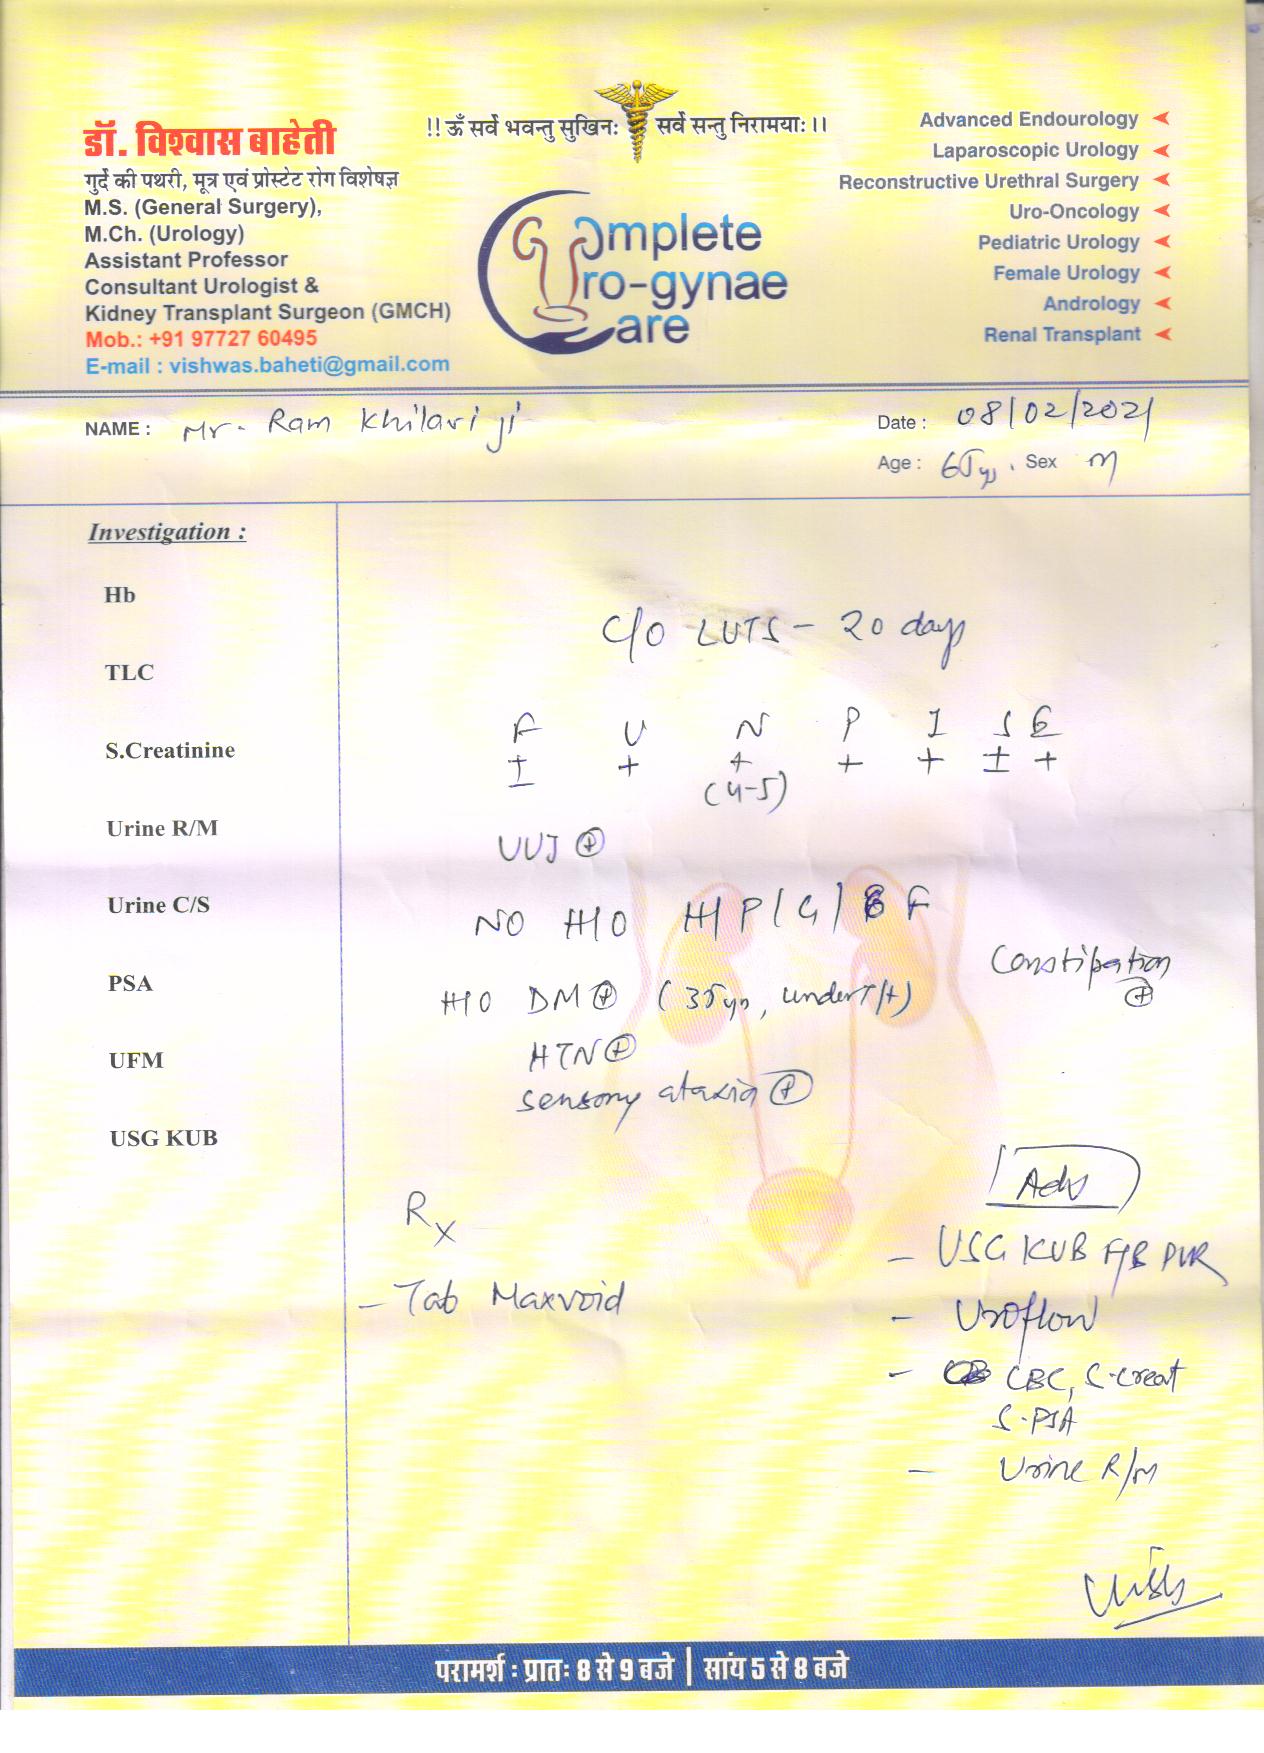 !! ॐ सर्वे भवन्तु सुखिनः सर्वे सन्तु निरामयाः ।।
डॉ. विश्वास बाहेती
गुर्दे की पथरी, मूत्र एवं प्रोस्टेट रोग विशेषज्ञ
M.S. (General Surgery),
M.Ch. (Urology)
Assistant Professor
Consultant Urologist &
Kidney Transplant Surgeon (GMCH)
Mob.: +91 97727 60495
E-mail : vishwas.baheti@gmail.com
Complete
Uro-gynae
Care
Advanced Endourology
Laparoscopic Urology
Reconstructive Urethral Surgery
Uro-Oncology
Pediatric Urology
Female Urology
Andrology
Renal Transplant
NAME : Mr. Ram Khilari ji
Date : 08/02/2021
Age : 65 yrs. Sex M
Investigation :
Hb
TLC
S.Creatinine
Urine R/M
Urine C/S
PSA
UFM
USG KUB
C/O LUTS - 20 days
F U N P I S E
± + + + + ± +
(4-5)
UUI ⊕
NO H/O H/P/G/ F
Constipation
⊕
H/O DM ⊕ (35yrs, under T/t)
HTN ⊕
sensory ataxia ⊕
Rx
- Tab Maxvoid
Adv
- USG KUB PVR
- Uroflow
- CBC, S.creat
S.PSA
- Urine R/M
परामर्श : प्रातः 8 से 9 बजे | सांय 5 से 8 बजे